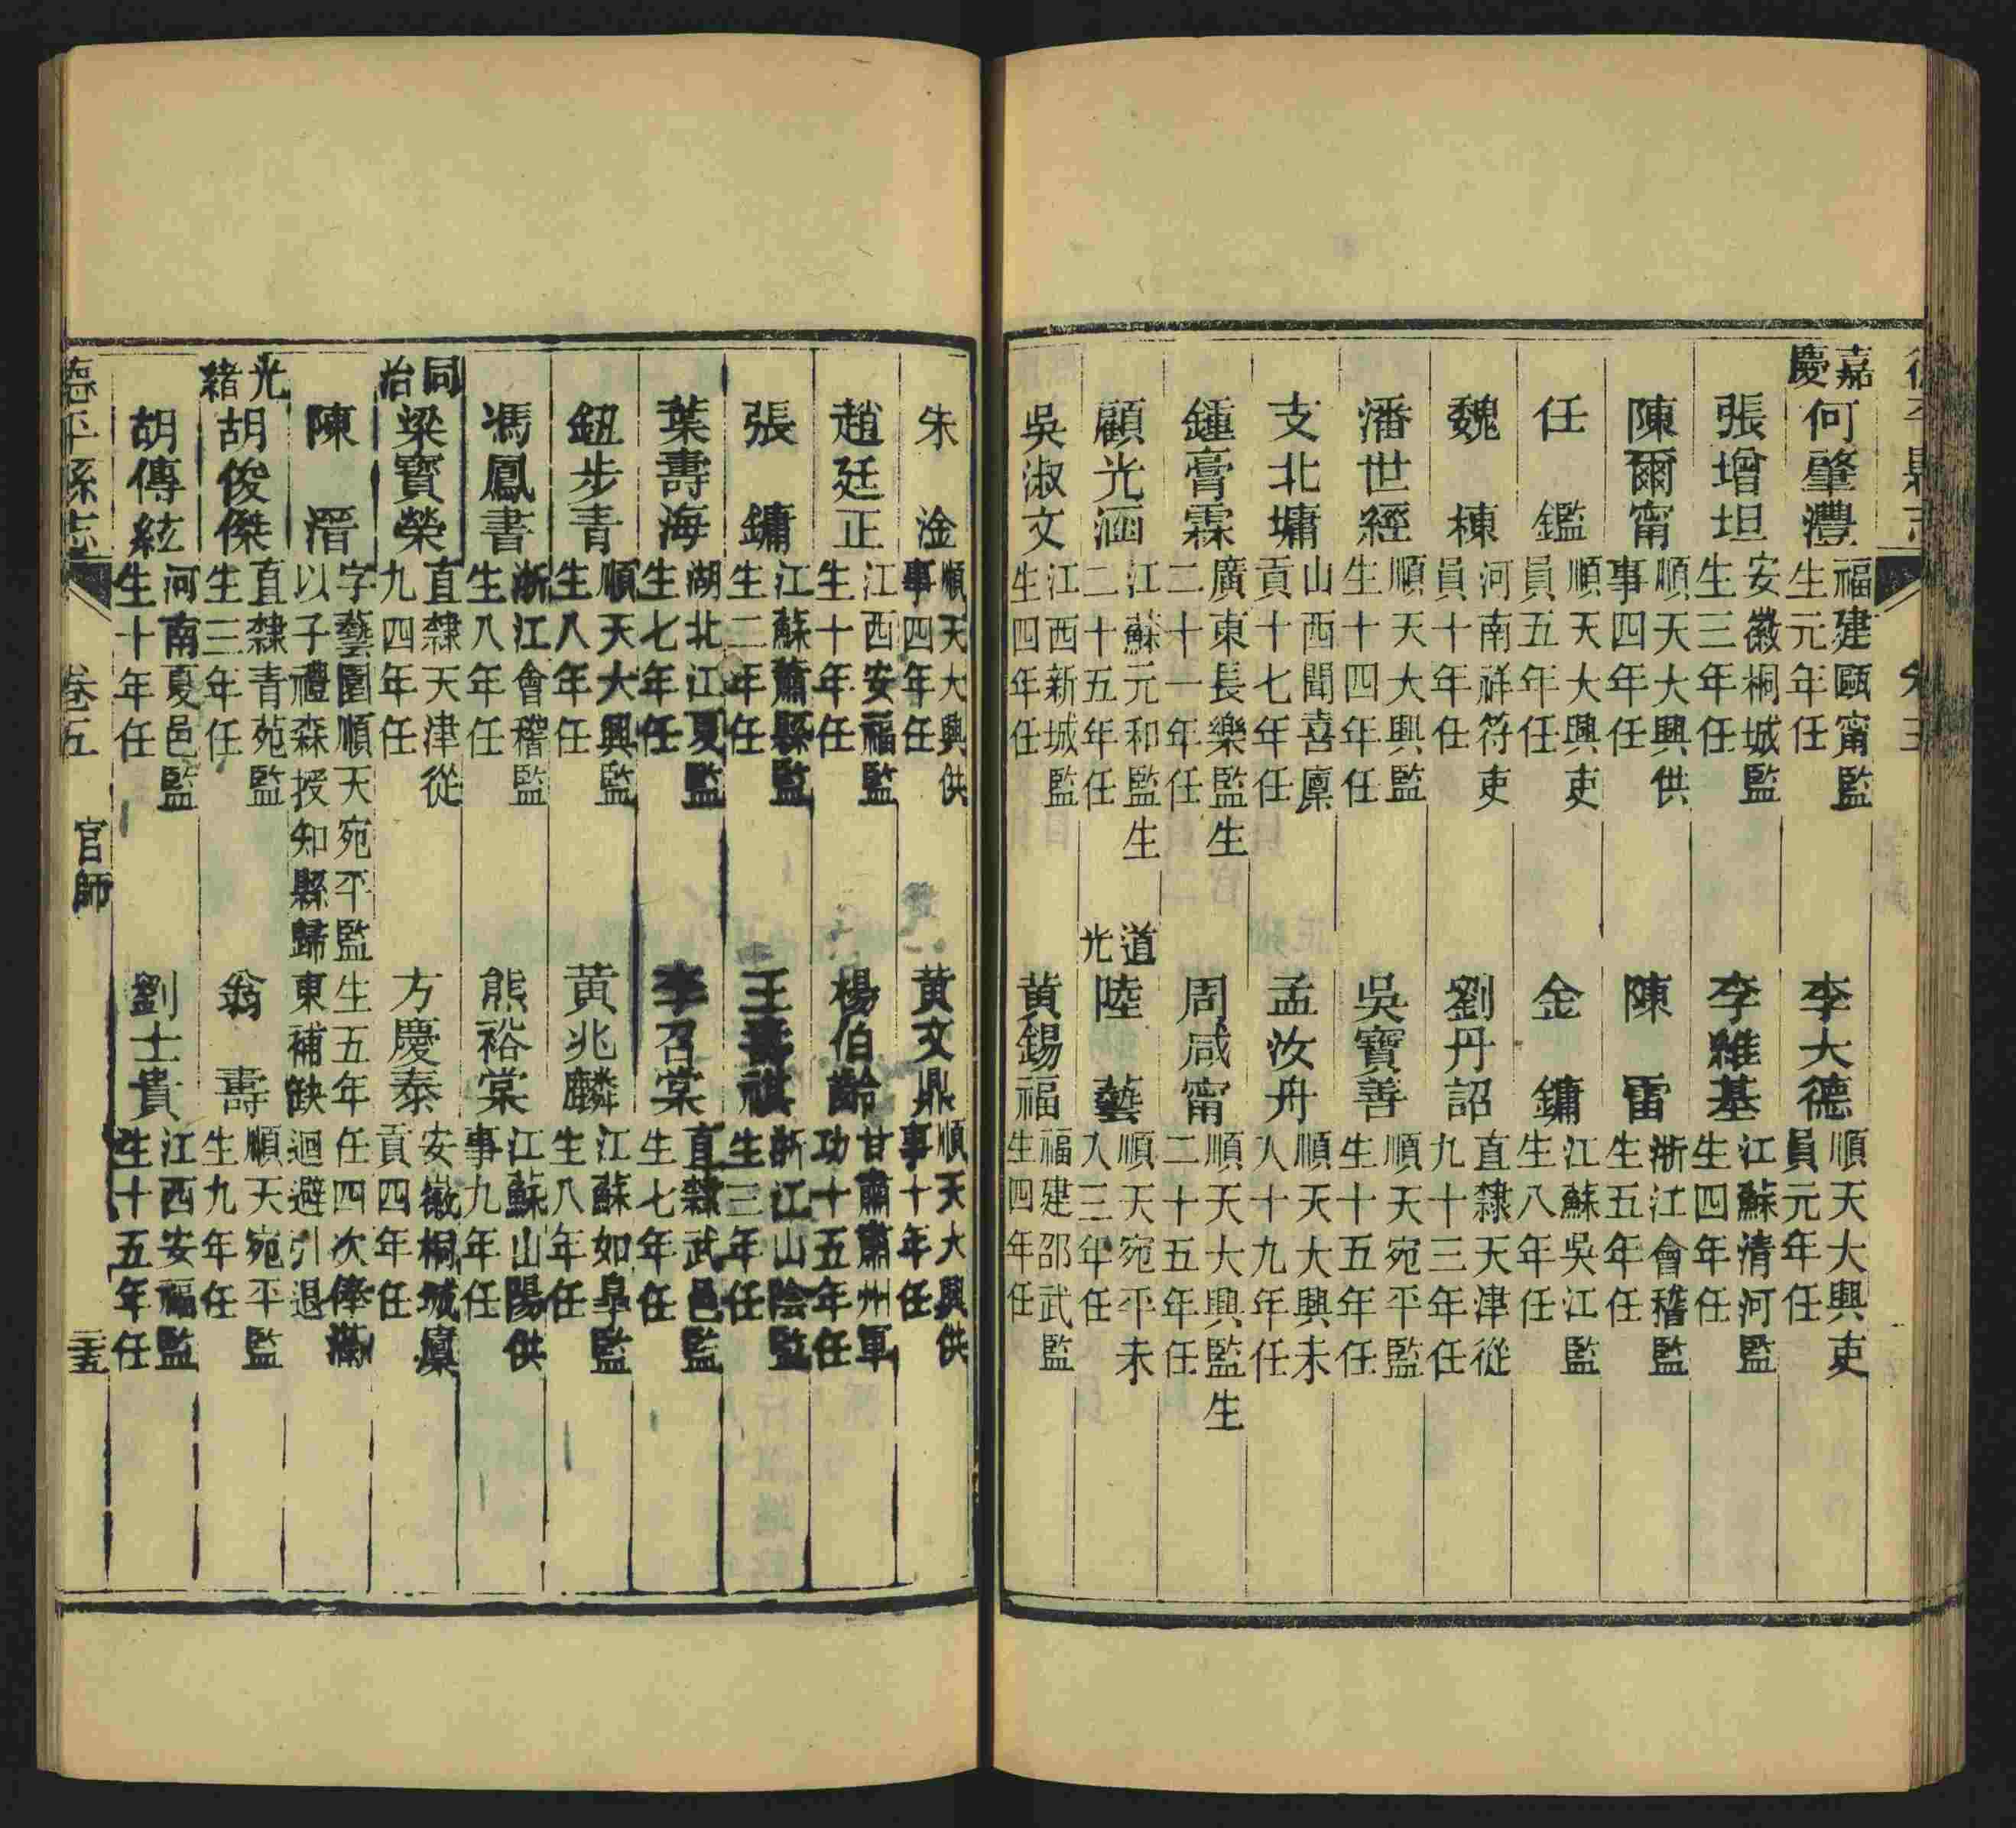 嘉慶
何肇灃 福建甌甯監生元年任
李大德 順天大興吏員元年任
張增坦 安徽桐城監生三年任
李雅基 江蘇清河監生四年任
陳爾甯 順天大興供事四年任
陳雷 浙江會稽監生五年任
任鑑 順天大興吏員五年任
金鏞 江蘇吳江監生八年任
魏棟 河南祥符吏員十年任
劉丹詔 直隸天津從九十三年任
潘世經 順天大興監生十四年任
吳寶善 順天宛平監生十五年任
支北墉 山西聞喜廩貢十七年任
孟汝舟 順天大興未入十九年任
鍾膏霖 廣東長樂監生二十一年任
周咸甯 順天大興監生二十五年任
顧光涵 江蘇元和監生二十五年任
道光
陸藝 順天宛平未入三年任
吳淑文 江西新城監生四年任
黃錫福 福建邵武監生四年任
朱淦 順天大興供事四年任
黃文鼎 順天大興供事十年任
趙廷正 江西安福監生十年任
楊伯齡 甘肅肅州軍功十五年任
張鏞 江蘇蕭縣監生二年任
王壽祺 浙江山陰監生三年任
葉壽海 湖北江夏監生七年任
李召棠 直隸武邑監生七年任
鈕步青 順天大興監生八年任
黃兆麟 江蘇如皋監生八年任
馮鳳書 浙江會稽監生八年任
熊裕棠 江蘇山陽供事九年任
同治
梁寶榮 直隸天津從九四年任
方慶泰 安徽桐城廩貢四年任
陳潛 字藝圃順天宛平監生五年任四次俸滿以子禮森授知縣歸東補缺迴避引退
光緒
胡俊傑 直隸青苑監生三年任
翁壽 順天宛平監生九年任
胡傳紘 河南夏邑監生十年任
劉士貴 江西安福監生十五年任
德平縣志 卷五 官師 二十五